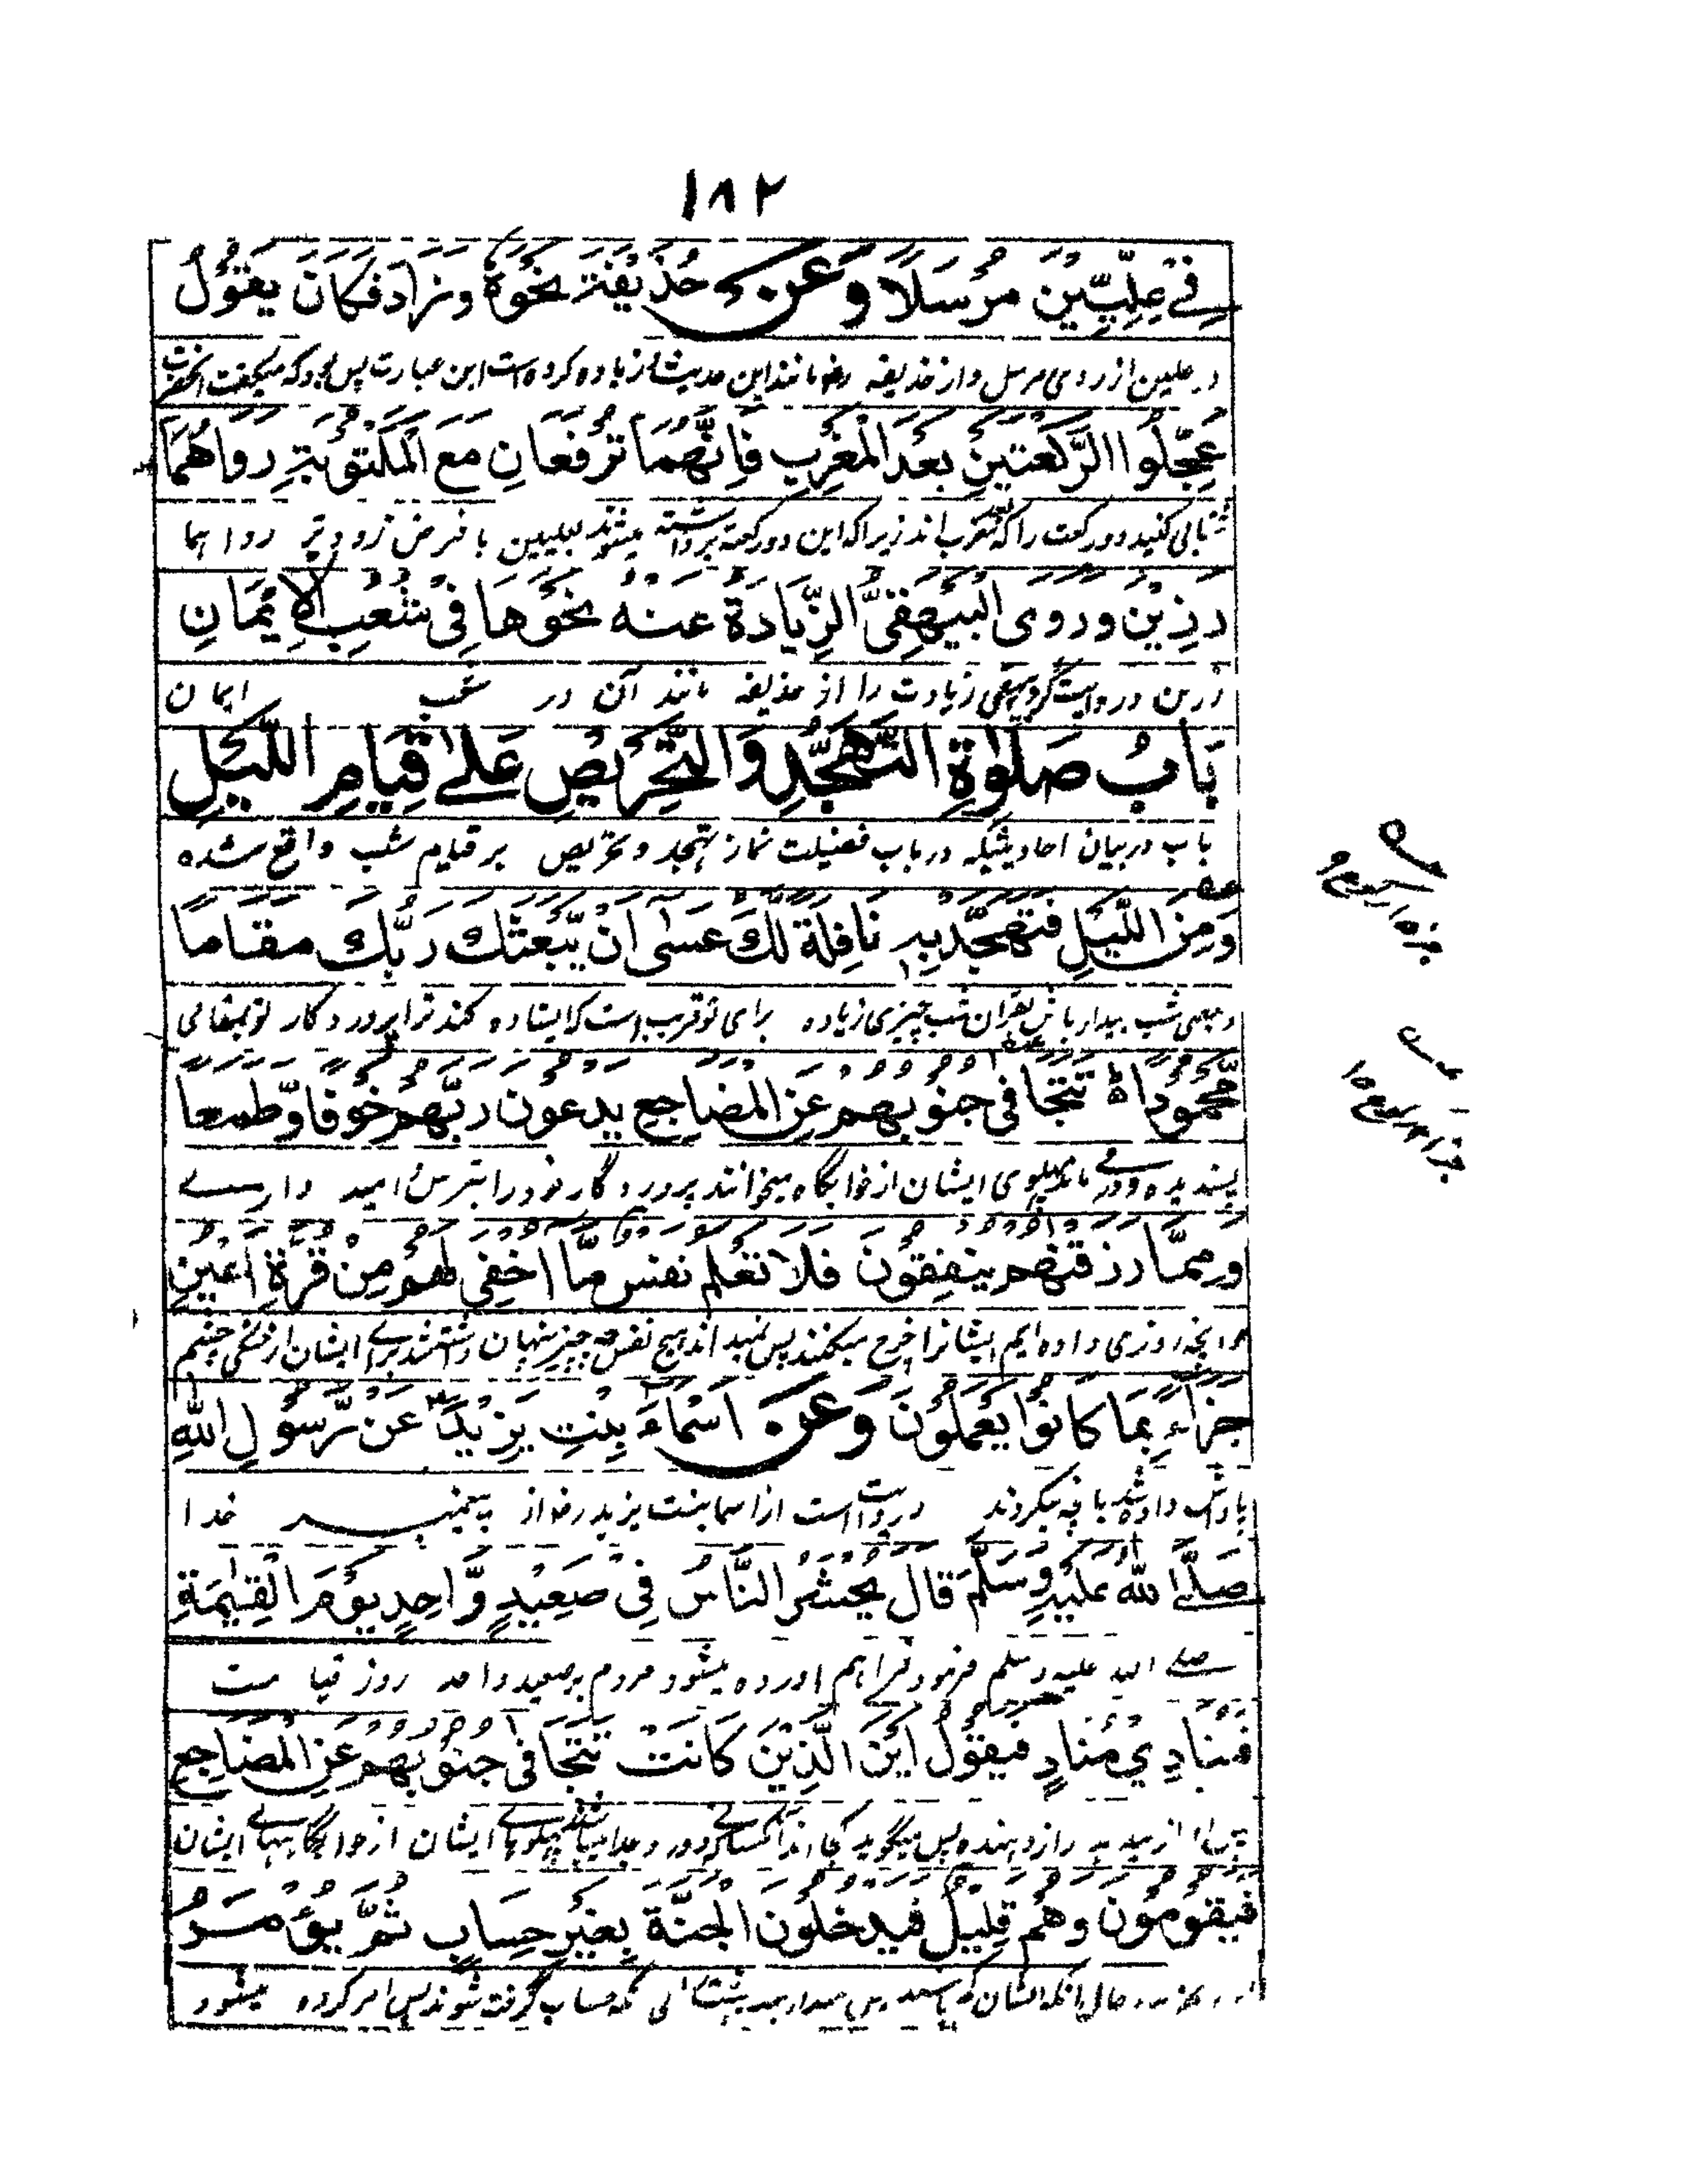 ۱۸۲
فِي عِلِّيِّينَ مُرْسَلًا وَعَنْ حُذَيْفَةَ نَحْوَهُ وَزَادَ فَكَانَ يَقُولُ
در علیین از روی مرسل و از حذیفه رض مانند این حدیث زیاده کرده است این عبارت پس بود که میگفت آنحضرت
عَجِّلُوا الرَّكْعَتَيْنِ بَعْدَ الْمَغْرِبِ فَإِنَّهُمَا تُرْفَعَانِ مَعَ الْمَكْتُوبَةِ رَوَاهُمَا
شتابی کنید دو رکعت را که مغرب اند زیرا که این دو رکعت برداشته میشوند بعلیین با فرض زودتر رواهما
رَزِيْنٌ وَرَوَى الْبَيْهَقِيُّ الزِّيَادَةَ عَنْهُ نَحْوَهَا فِي شُعَبِ الْإِيْمَانِ
رزین و روایت کرد بیهقی زیادت را از حذیفه مانند آن در شعب ایمان
بَابُ صَلٰوةِ التَّهَجُّدِ وَالتَّحْرِيْصِ عَلٰى قِيَامِ اللَّيْلِ
باب در بیان احادیثیکه در باب فضیلت نماز تهجد و تحریص بر قیام شب واقع شده
وَمِنَ اللَّيْلِ فَتَهَجَّدْ بِهٖ نَافِلَةً لَّكَ عَسٰى اَنْ يَّبْعَثَكَ رَبُّكَ مَقَامًا
و بعضی شب بیدار باش بقرآن شب چیزی زیاده برای تو قریب است که ایستاده کند ترا پروردگار تو بمقامی
مَّحْمُوْدًا ٥ تَتَجَافٰى جُنُوْبُهُمْ عَنِ الْمَضَاجِعِ يَدْعُوْنَ رَبَّهُمْ خَوْفًا وَّطَمَعًا
پسندیده و دور می ماند پهلوی ایشان از خوابگاه میخوانند پروردگار خود را بترس و امیدواری
وَمِمَّا رَزَقْنٰهُمْ يُنْفِقُوْنَ فَلَا تَعْلَمُ نَفْسٌ مَّا اُخْفِيَ لَهُمْ مِنْ قُرَّةِ اَعْيُنٍ
و آنچه روزی داده ایم ایشانرا خرچ میکنند پس نمیداند هیچ نفس چه چیز پنهان داشته شد برای ایشان از خنکی چشم
جَزَاءً بِمَا كَانُوْا يَعْمَلُوْنَ وَعَنْ اَسْمَاءَ بِنْتِ يَزِيْدَ عَنْ رَّسُوْلِ اللّٰهِ
پاداش داده شد بآنچه میکردند و روایت است از اسما بنت یزید رض از پیغمبر خدا
صَلَّى اللّٰهُ عَلَيْهِ وَسَلَّمَ قَالَ يُحْشَرُ النَّاسُ فِيْ صَعِيْدٍ وَّاحِدٍ يَوْمَ الْقِيٰمَةِ
صلی الله علیه وسلم فرمود فراهم آورده میشود مردم بر صعید واحد روز قیامت
فَيُنَادِيْ مُنَادٍ فَيَقُوْلُ اَيْنَ الَّذِيْنَ كَانَتْ تَتَجَافٰى جُنُوْبُهُمْ عَنِ الْمَضَاجِعِ
پس میگوید کجا اند کسانیکه دور و جدا پهلوهای ایشان از خوابگاههای ایشان
فَيَقُوْمُوْنَ وَهُمْ قَلِيْلٌ فَيَدْخُلُوْنَ الْجَنَّةَ بِغَيْرِ حِسَابٍ ثُمَّ يُؤْمَرُ
حال آنکه ایشان که حساب گرفته شوند پس امر کرده میشود